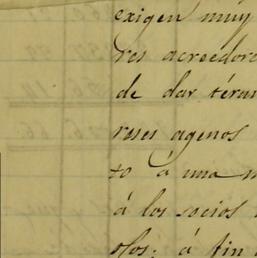 exigen muy
res acreedore
de dar térm
reses agenos
to á una m
á los socios
dos; á fin